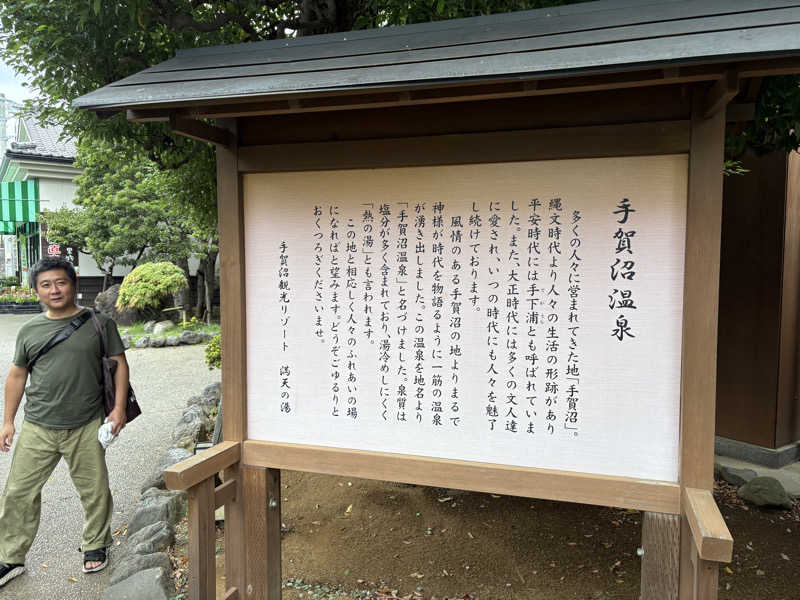 手賀沼温泉
多くの人々に営まれてきた地「手賀沼」。
縄文時代より人々の生活の形跡があり
平安時代には手下浦とも呼ばれていま
てかうら
した。また、大正時代には多くの文人達
に愛され、いつの時代にも人々を魅了
し続けております。
風情のある手賀沼の地よりまるで
神様が時代を物語るように一筋の温泉
が湧き出しました。この温泉を地名より
「手賀沼温泉」と名づけました。泉質は
塩分が多く含まれており、湯冷めしにくく
「熱の湯」とも言われます。
この地と相応しく人々のふれあいの場
になればと望みます。どうぞごゆるりと
おくつろぎくださいませ。
手賀沼観光リゾート 満天の湯
直